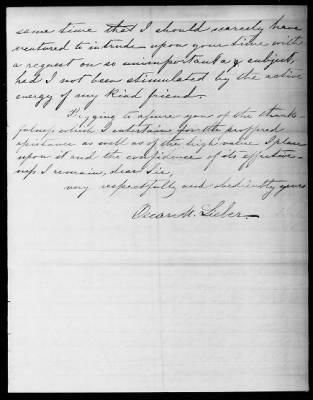 same time that I should scarcely have
ventured to intrude upon your time with
a request on so unimportant a subject,
had I not been stimulated by the active
energy of my kind friend.
Begging to assure you of the thank-
fulness which I entertain for the proffered
assistance as well as of the high value I place
upon it and the confidence of its effective-
ness I remain, dear Sir,
very respectfully and obediently yours
Oscar M. Lieber.